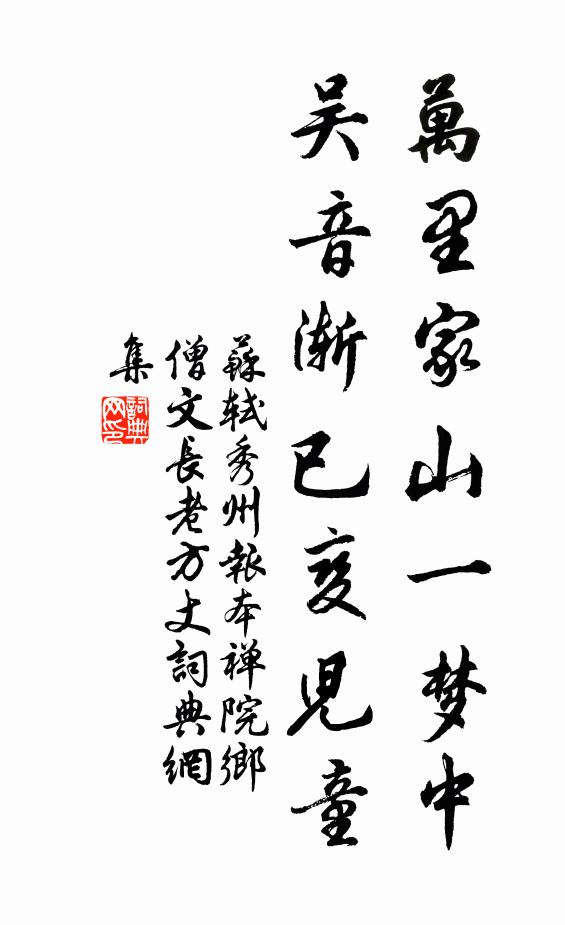 萬里家山一梦中
吴音漸已变児童
蘇軾秀州報本禅院鄉
僧文長老方丈詞典網
集
詞典
网印